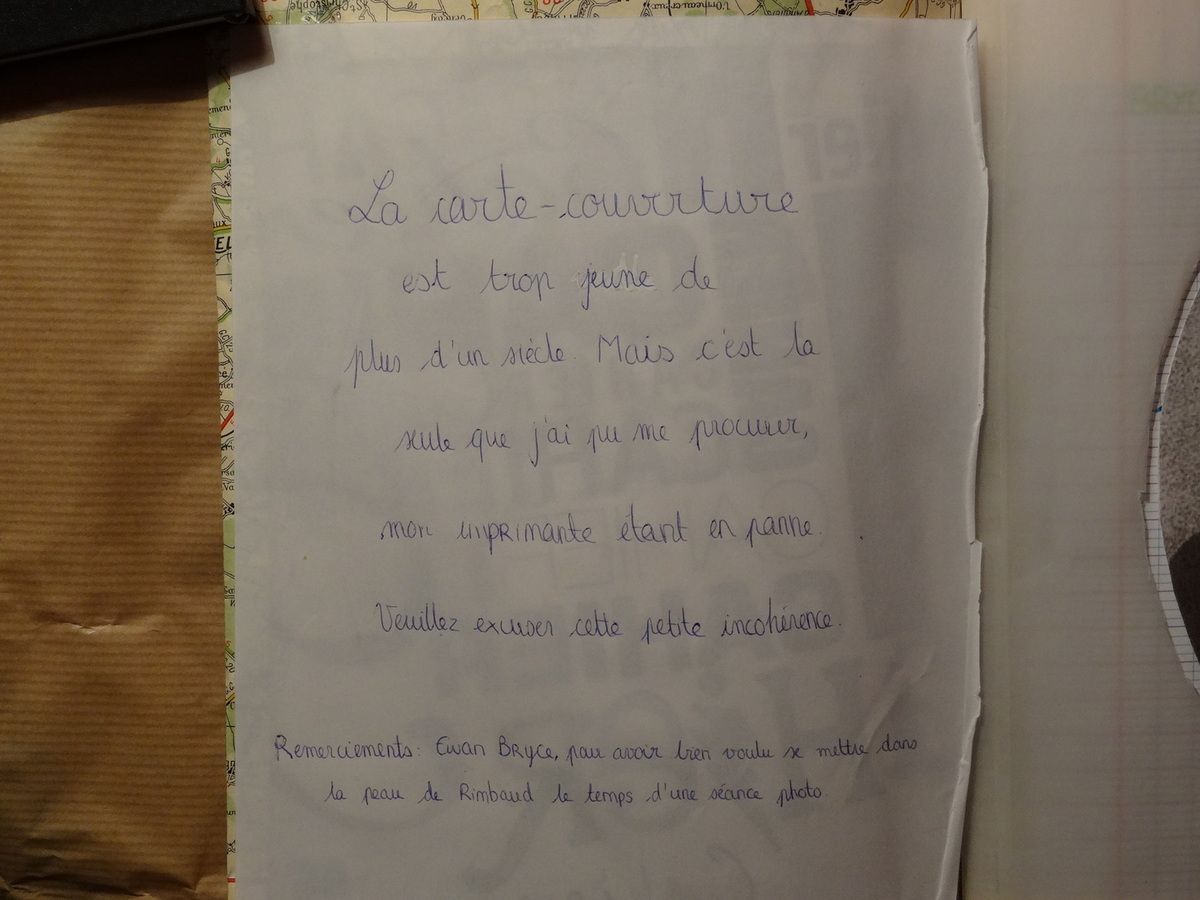 St Christophe
La carte-couverture
est trop jeune de
plus d'un siècle. Mais c'est la
seule que j'ai pu me procurer,
mon imprimante étant en panne.
Veuillez excuser cette petite incohérence.
Remerciements: Ewan BRyce, pour avoir bien voulu se mettre dans
la peau de Rimbaud le temps d'une séance photo.